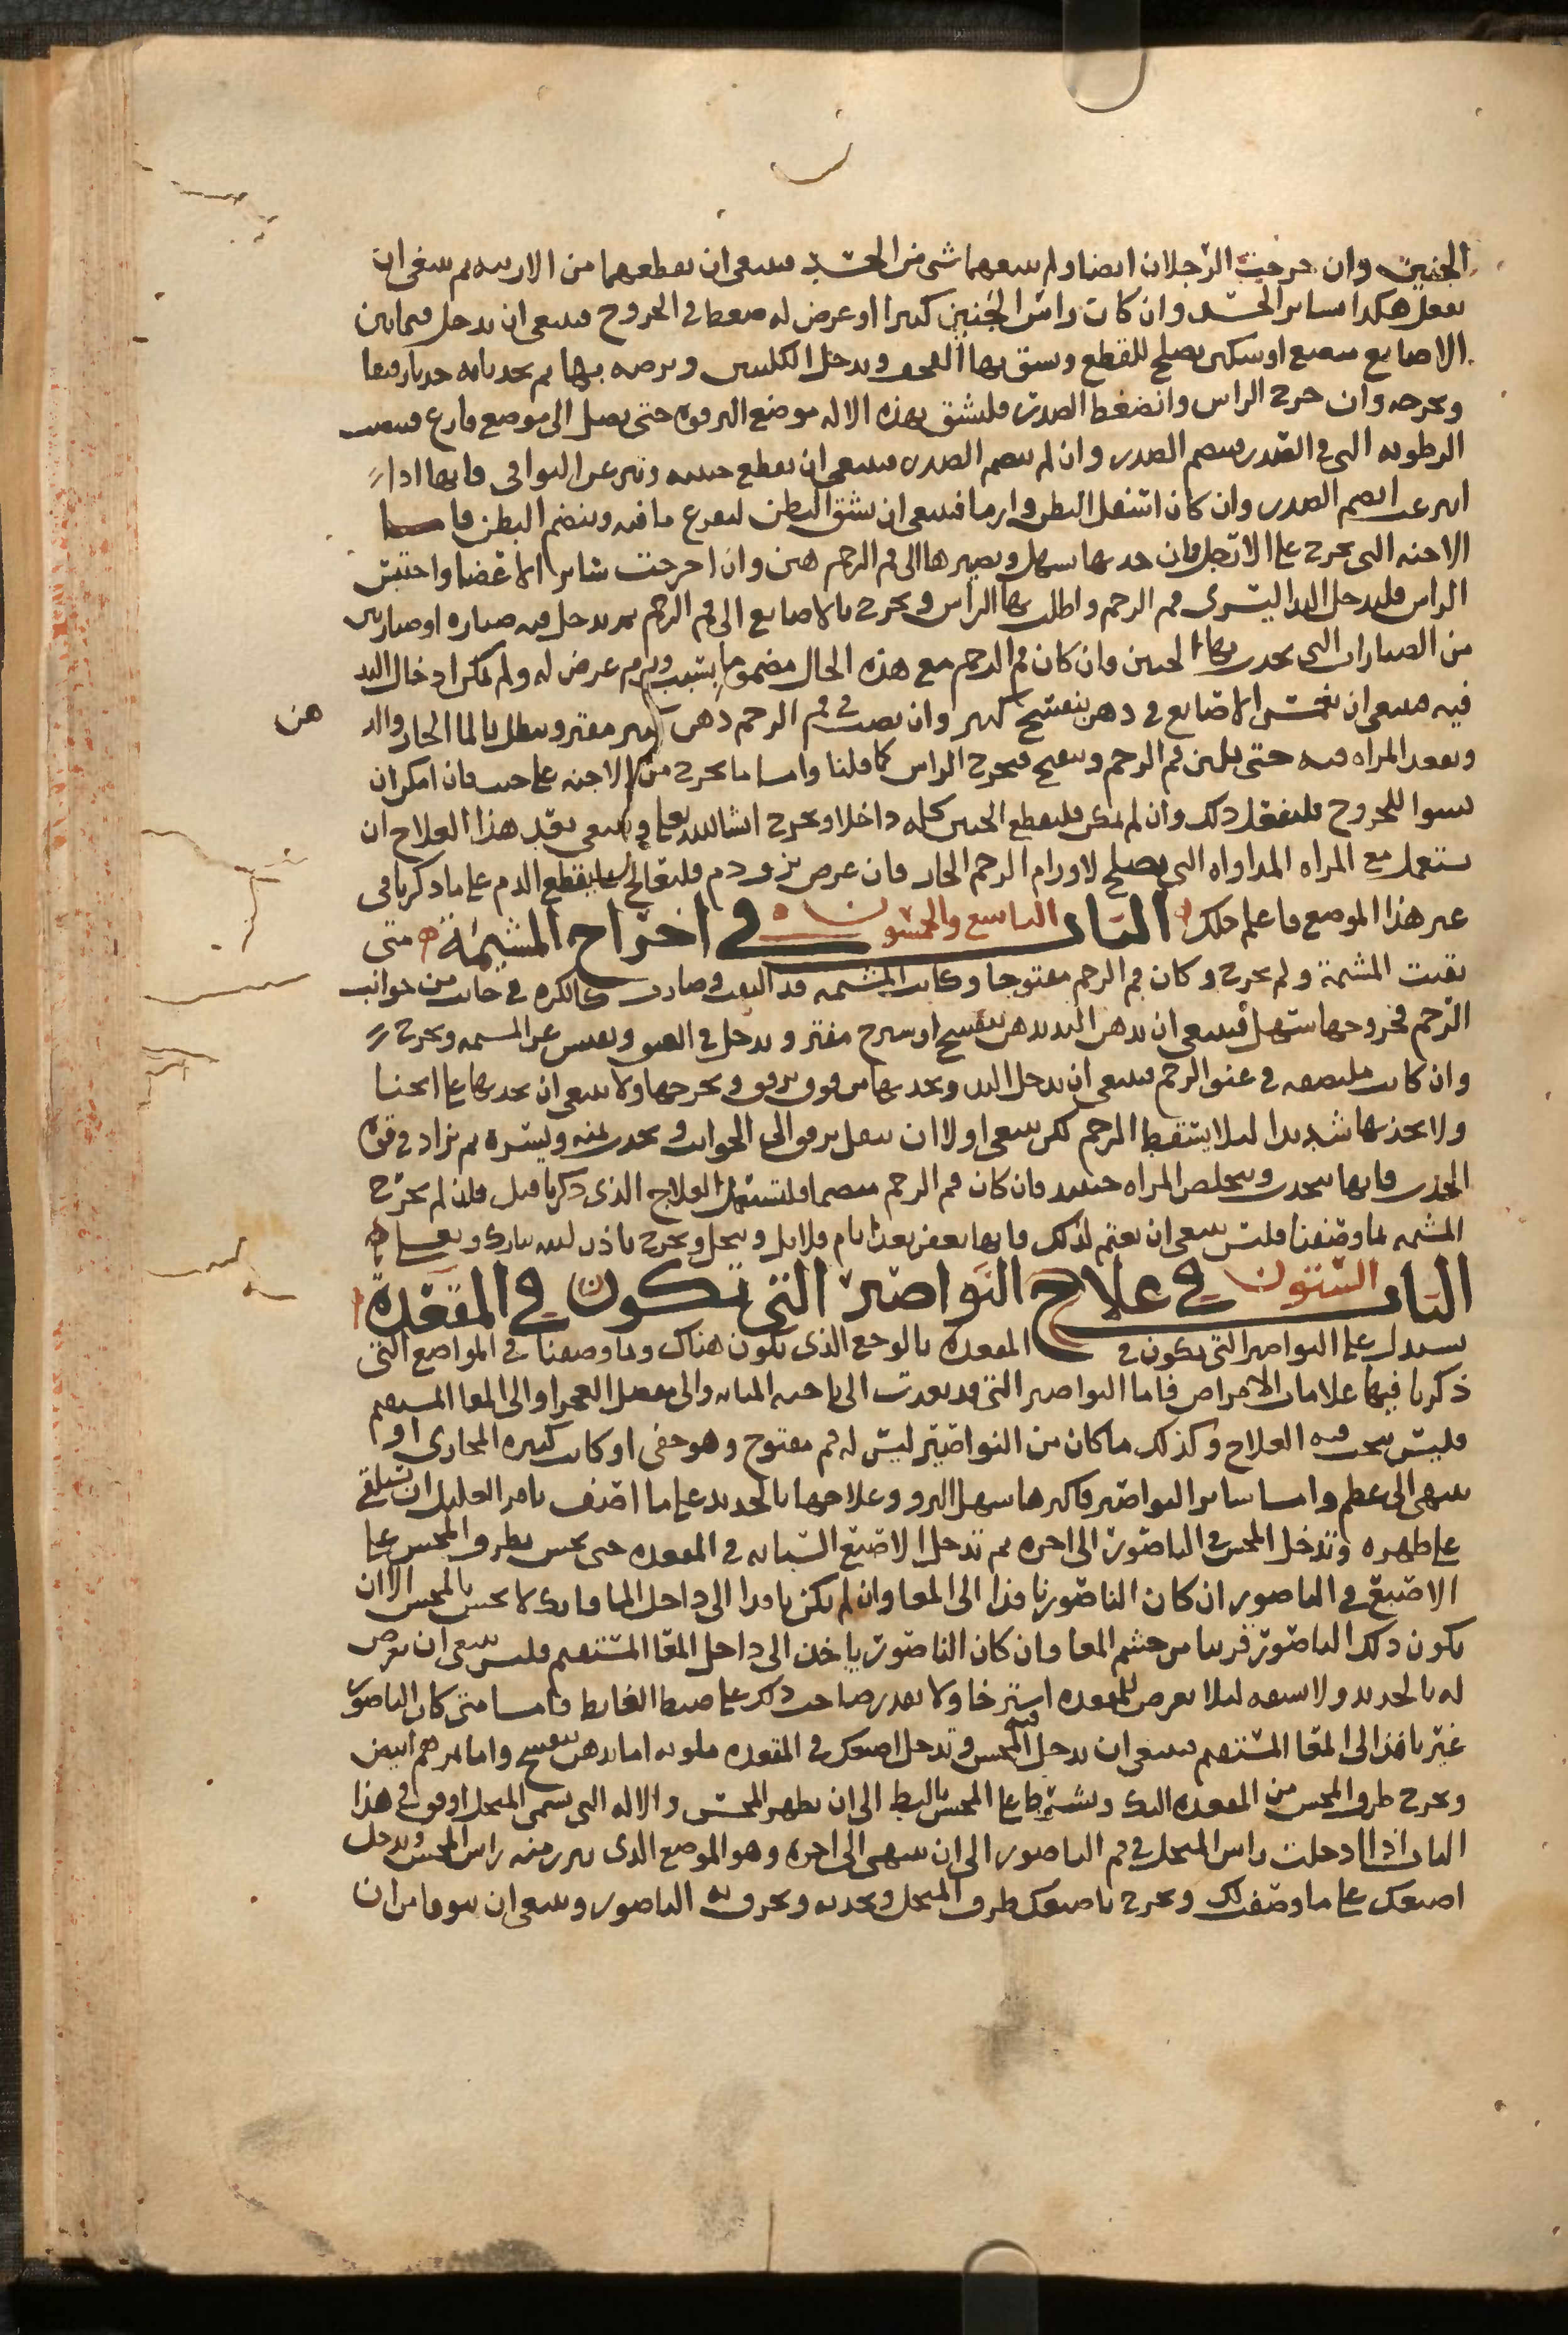 الجنين وان خرجت الرجلان ايضا ولم يتبعهما شي من الجسد فينبغي ان يقطعهما من الاربيه ثم ينبغي ان
يفعل هكذا بساير الجسد وان كان راس الجنين كبيرا او عرض له ضغط في الخروج فينبغي ان يدخل فيما بين
الاصابع مبضع او سكين يصلح للقطع ويشق بها القحف ويدخل الكلبتين ويرضه بها ثم يجذبانه جذبا رفيقا
ويخرجه وان خرج الراس وانضغط الصدر فليشق بهذه الاله موضع الترقوه حتى يصل الى موضع فارغ فينصب
الرطوبه التي في الصدر فينضم الصدر وان لم ينضم الصدر فينبغي ان يقطع حينئذ وينزع التراقي فانها اذا
انتزعت انضم الصدر وان كان اسفل البطن وارما فينبغي ان يشق البطن ليفرغ ما فيه وينضم البطن فاما
الاجنه التي تخرج على الارجل فان جذبها سهل وتصيرها الى فم الرحم هين وان اخرجت ساير الاعضا واحتبس
الراس فليدخل اليد اليسرى فم الرحم واطلب بها الراس ويخرج بالاصابع الى فم الرحم ثم يدخل فيه صناره او صنارتين
من الصنارات التي يجذب بها الجنين فان كان فم الرحم مع هذه الحال مضموما بسبب ورم عرض له ولم يمكن ادخال اليد
فيه فينبغي ان تغمس الاصابع في دهن بنفسج كثير وان يصب في فم الرحم دهن كثير مفتر ويبطل بالما الحار والد هن
وتقعد المراه فيه حتى يلين فم الرحم وينفتح فيخرج الراس كما قلنا واما ما يخرج من الاجنه على جنب فان امكن ان
يسوا للخروج فليفعل ذلك وان لم يمكن فليقطع الجنين كله داخلا ويخرج وينبغي بعد هذا العلاج ان
يستعمل مع المراه المداواه التي تصلح لاورام الرحم الحار فان عرض نزف دم فليعالج بما يقطع الدم على ما ذكرنا في
غير هذا الموضع فاعلم ذلك الباب التاسع والخمسون في اخراج المشيمة متى
بقيت المشيمة ولم تخرج وكان فم الرحم مفتوحا وكانت المشيمه قد التفت وصارت كالكره في جانب من جوانب
الرحم فخروجها سهل فينبغي ان يدهن اليد بدهن بنفسج او شيرج مفتر ويدخل في العمق ويفتش عن المشيمه ويخرج
وان كانت ملتصقه في عنق الرحم فينبغي ان يدخل اليد ويجذبها من فوق برفق ويخرجها ولا ينبغي ان يجذبها على انحنا
ولا يجذبها شديدا ليلا يسقط الرحم لكن ينبغي اولا ان ينقل برفق الى الجوانب ويجذب يمنه ويسره ثم يزاد في قوة
الجذب فانها تنجذب وتتخلص المراه حينئذ فان كان فم الرحم منضما فلتستعمل العلاج الذي ذكرنا قبل فان لم تخرج
المشيمه بما وصفنا فليس ينبغي ان يغتم لذلك فانها تعفن بعد ايام قلايل وتنحل وتخرج باذن الله تبارك وتعالى
الباب الستون في علاج النواصير التي تكون في المقعدة
يستدل على النواصير التي تكون في المقعده بالوجع الذي يكون هناك وبما وصفنا في المواضع التي
ذكرنا فيها علامات الامراض فاما النواصير التي قد بعدت الى ناحيه المثانه والى مفصل الفخذ او الى المعا المستقيم
فليس ينجب فيه العلاج وكذلك ما كان من النواصير ليس له فم مفتوح وهو خفي او كانت كثيره المجاري او
ينتهي الى عظم واما ساير النواصير فاكثرها سهل البرو وعلاجها بالحديد على ما اصف يامر العليل ان يستلقي
على ظهره وتدخل المجس في الناصور الى اخره ثم تدخل الاصبع السبابه في المقعده حتى يحس بطرف المجس على
الاصبع في الناصور ان كان الناصور نافذا الى المعا وان لم يكن نافذا الى داخل المعا فانك لا تحس بالمجس الا ان
يكون ذلك الناصور قريبا من جسم المعا وان كان الناصور ياخذ الى داخل المعا المستقيم فليس ينبغي ان يعرض
له بالحديد ولا يشقه ليلا يعرض للمقعده استرخا ولا يقدر صاحب ذلك على ضبط الغايط فاما متى كان الناصور
غير نافذ الى المعا المستقيم فينبغي ان يدخل المجس فيه وتدخل اصبعك في المقعده ملوثه اما بدهن بنفسج واما بمرهم ابيض
ويخرج طرف المجس من المقعده اليك ويشرط على المجس بالبط الى ان يظهر المجس والاله التي تسمى المنجل اوفق في هذا
الباب اذا ادخلت راس المنجل في فم الناصور الى ان ينتهي الى اخره وهو الموضع الذي يبرز منه راس المجس ويدخل
اصبعك على ما وصفت لك ويخرج باصبعك طرف المنجل ويجذبه ويخرق به الناصور وينبغي ان يتوقا من ان